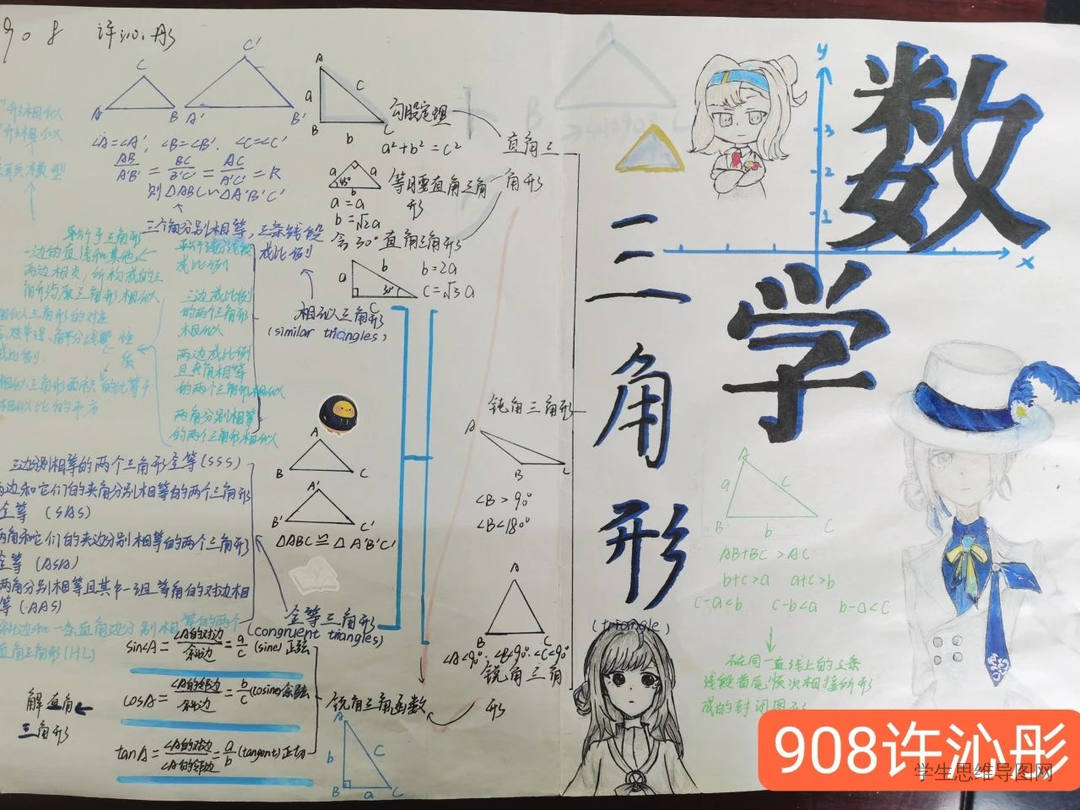 908 许沁彤
数
学
三
角
形
(triangle)
y
3
2
1
x
C
A B
C'
A' B'
∠A=∠A', ∠B=∠B', ∠C=∠C'
AB/A'B' = BC/B'C' = AC/A'C' = k
则△ABC∽△A'B'C'
三个角分别相等,三条线段
成比例
相似三角形
(similar triangles)
三边成比例
的两个三角形
相似
两边成比例
且夹角相等
的两个三角形相似
两角分别相等
的两个三角形相似
平行于三角形
一边的直线和其他
两边相交,所构成的三
角形与原三角形相似
相似三角形面积的比等于
相似比的平方
A
a
B b C
勾股定理
a²+b²=c²
直角三
角形
a a
45°
b
等腰直角三角
形
a=a
b=√2a
含30°直角三角形
a b
30°
C
b=2a
c=√3a
钝角三角形
A
B C
∠B>90°
∠B<180°
A
B C
∠A<90° ∠B<90° ∠C<90°
锐角三角
形
三边分别相等的两个三角形全等(SSS)
两边和它们的夹角分别相等的两个三角形
全等 (SAS)
两角和它们的夹边分别相等的两个三角形
全等(ASA)
两角分别相等且其中一组等角的对边相
等(AAS)
斜边和一条直角边分别相等的两个
直角三角形(HL)
A
B C
A'
B' C'
△ABC≌△A'B'C'
全等三角形
(congruent triangles)
sin∠A=∠A的对边/斜边=a/c (sine)正弦
cosA=∠A的邻边/斜边=b/c (cosine)余弦
tanA=∠A的对边/∠A的邻边=a/b (tangent)正切
解直角
三角形
锐角三角函数
A
b c
B a C
A
a c
B b C
AB+BC>AC
b+c>a a+c>b
c-a<b c-b<a b-a<c
不在同一直线上的三条
线段首尾依次相接所形
成的封闭图形
908许沁彤
学生思维导图网